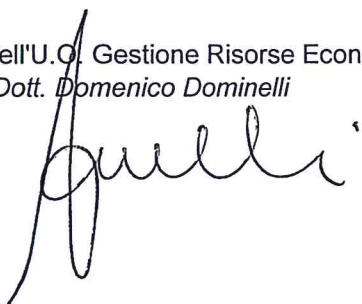 ell'U.O. Gestione Risorse Econ
Dott. Domenico Dominelli